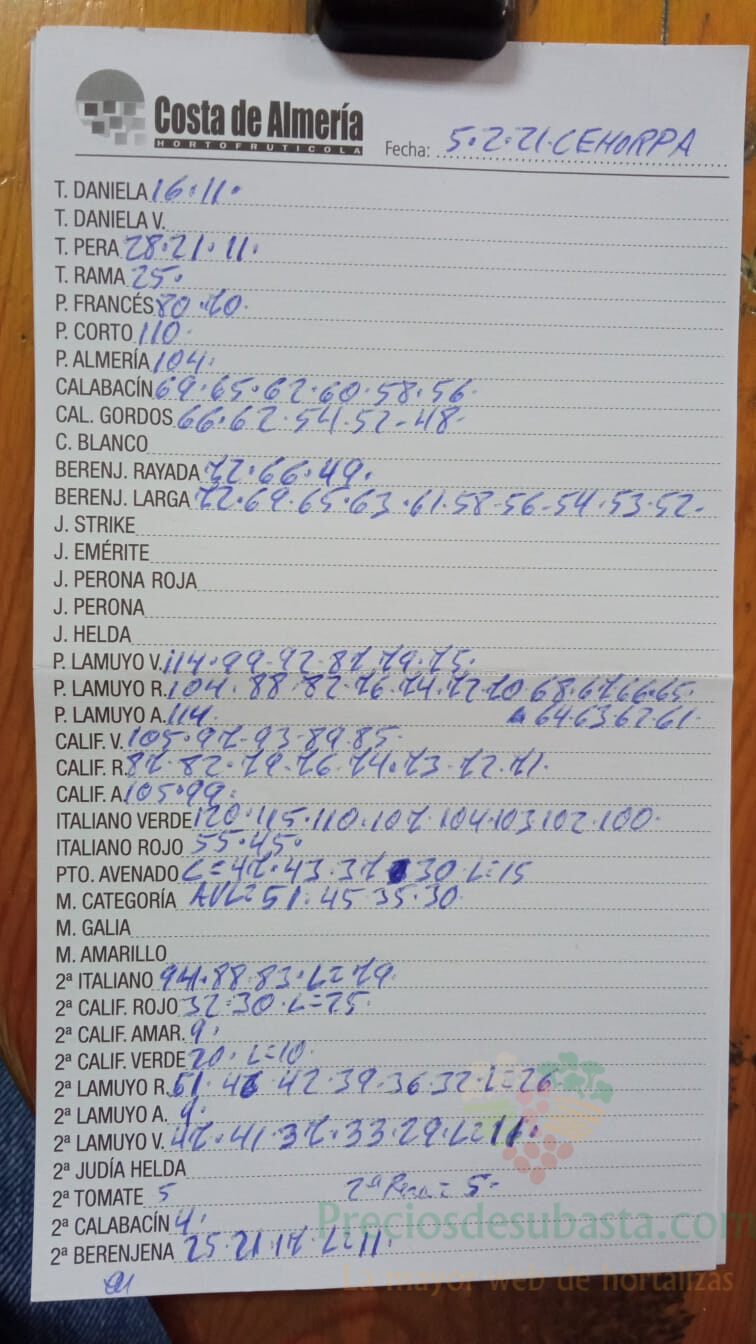 Costa de Almería
HORTOFRUTICOLA
Fecha: 5.2.21.CEHORPA
T. DANIELA 16.11.
T. DANIELA V.
T. PERA 28.21.11.
T. RAMA 25.
P. FRANCÉS 80.70.
P. CORTO 110.
P. ALMERÍA 104.
CALABACÍN 69.65.62.60.58.56.
CAL. GORDOS 66.62.54.52-48-
C. BLANCO
BERENJ. RAYADA 72.66.49.
BERENJ. LARGA 72.69.65.63.61.58-56-54.53.52-
J. STRIKE
J. EMÉRITE
J. PERONA ROJA
J. PERONA
J. HELDA
P. LAMUYO V. 114.99-92-87.79.75.
P. LAMUYO R. 104.88.82.76.74.72.70.68.67.66.65.
P. LAMUYO A. 114. 64.63.62.61.
CALIF. V. 105.97-93-89.85-
CALIF. R. 87-82.79-76.74.73.72.71.
CALIF. A. 105.99.
ITALIANO VERDE 120.115.110.107.104.103.102.100.
ITALIANO ROJO 55.45.
PTO. AVENADO L=47.43.37.30.L=15
M. CATEGORÍA AVL=51.45.35.30.
M. GALIA
M. AMARILLO
2ª ITALIANO 94.88.83.L=79.
2ª CALIF. ROJO 32=30.L=25.
2ª CALIF. AMAR. 9.
2ª CALIF. VERDE 20. L=10.
2ª LAMUYO R. 51.46.42.39.36.32.L=26.
2ª LAMUYO A. 9.
2ª LAMUYO V. 47.41.37.33.29.L=11.
2ª JUDÍA HELDA
2ª TOMATE 5 2ª Pera= 5-
2ª CALABACÍN 4.
2ª BERENJENA 25.21.17.L=11.
Preciosdesubasta.com
La mayor web de hortalizas